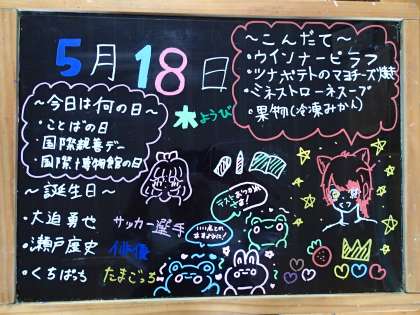 5月18日
木ようび
～こんだて～
・ウインナーピラフ
・ツナポテトのマヨチーズ焼き
・ミネストローネスープ
・果物(冷凍みかん)
～今日は何の日～
・ことばの日
・国際親善デー
・国際博物館の日
～誕生日～
・大迫勇也 サッカー選手
・瀬戸康史 俳優
・くちぱっち たまごっち
テストおつかれ
さま!
いい点とれ
ますように!